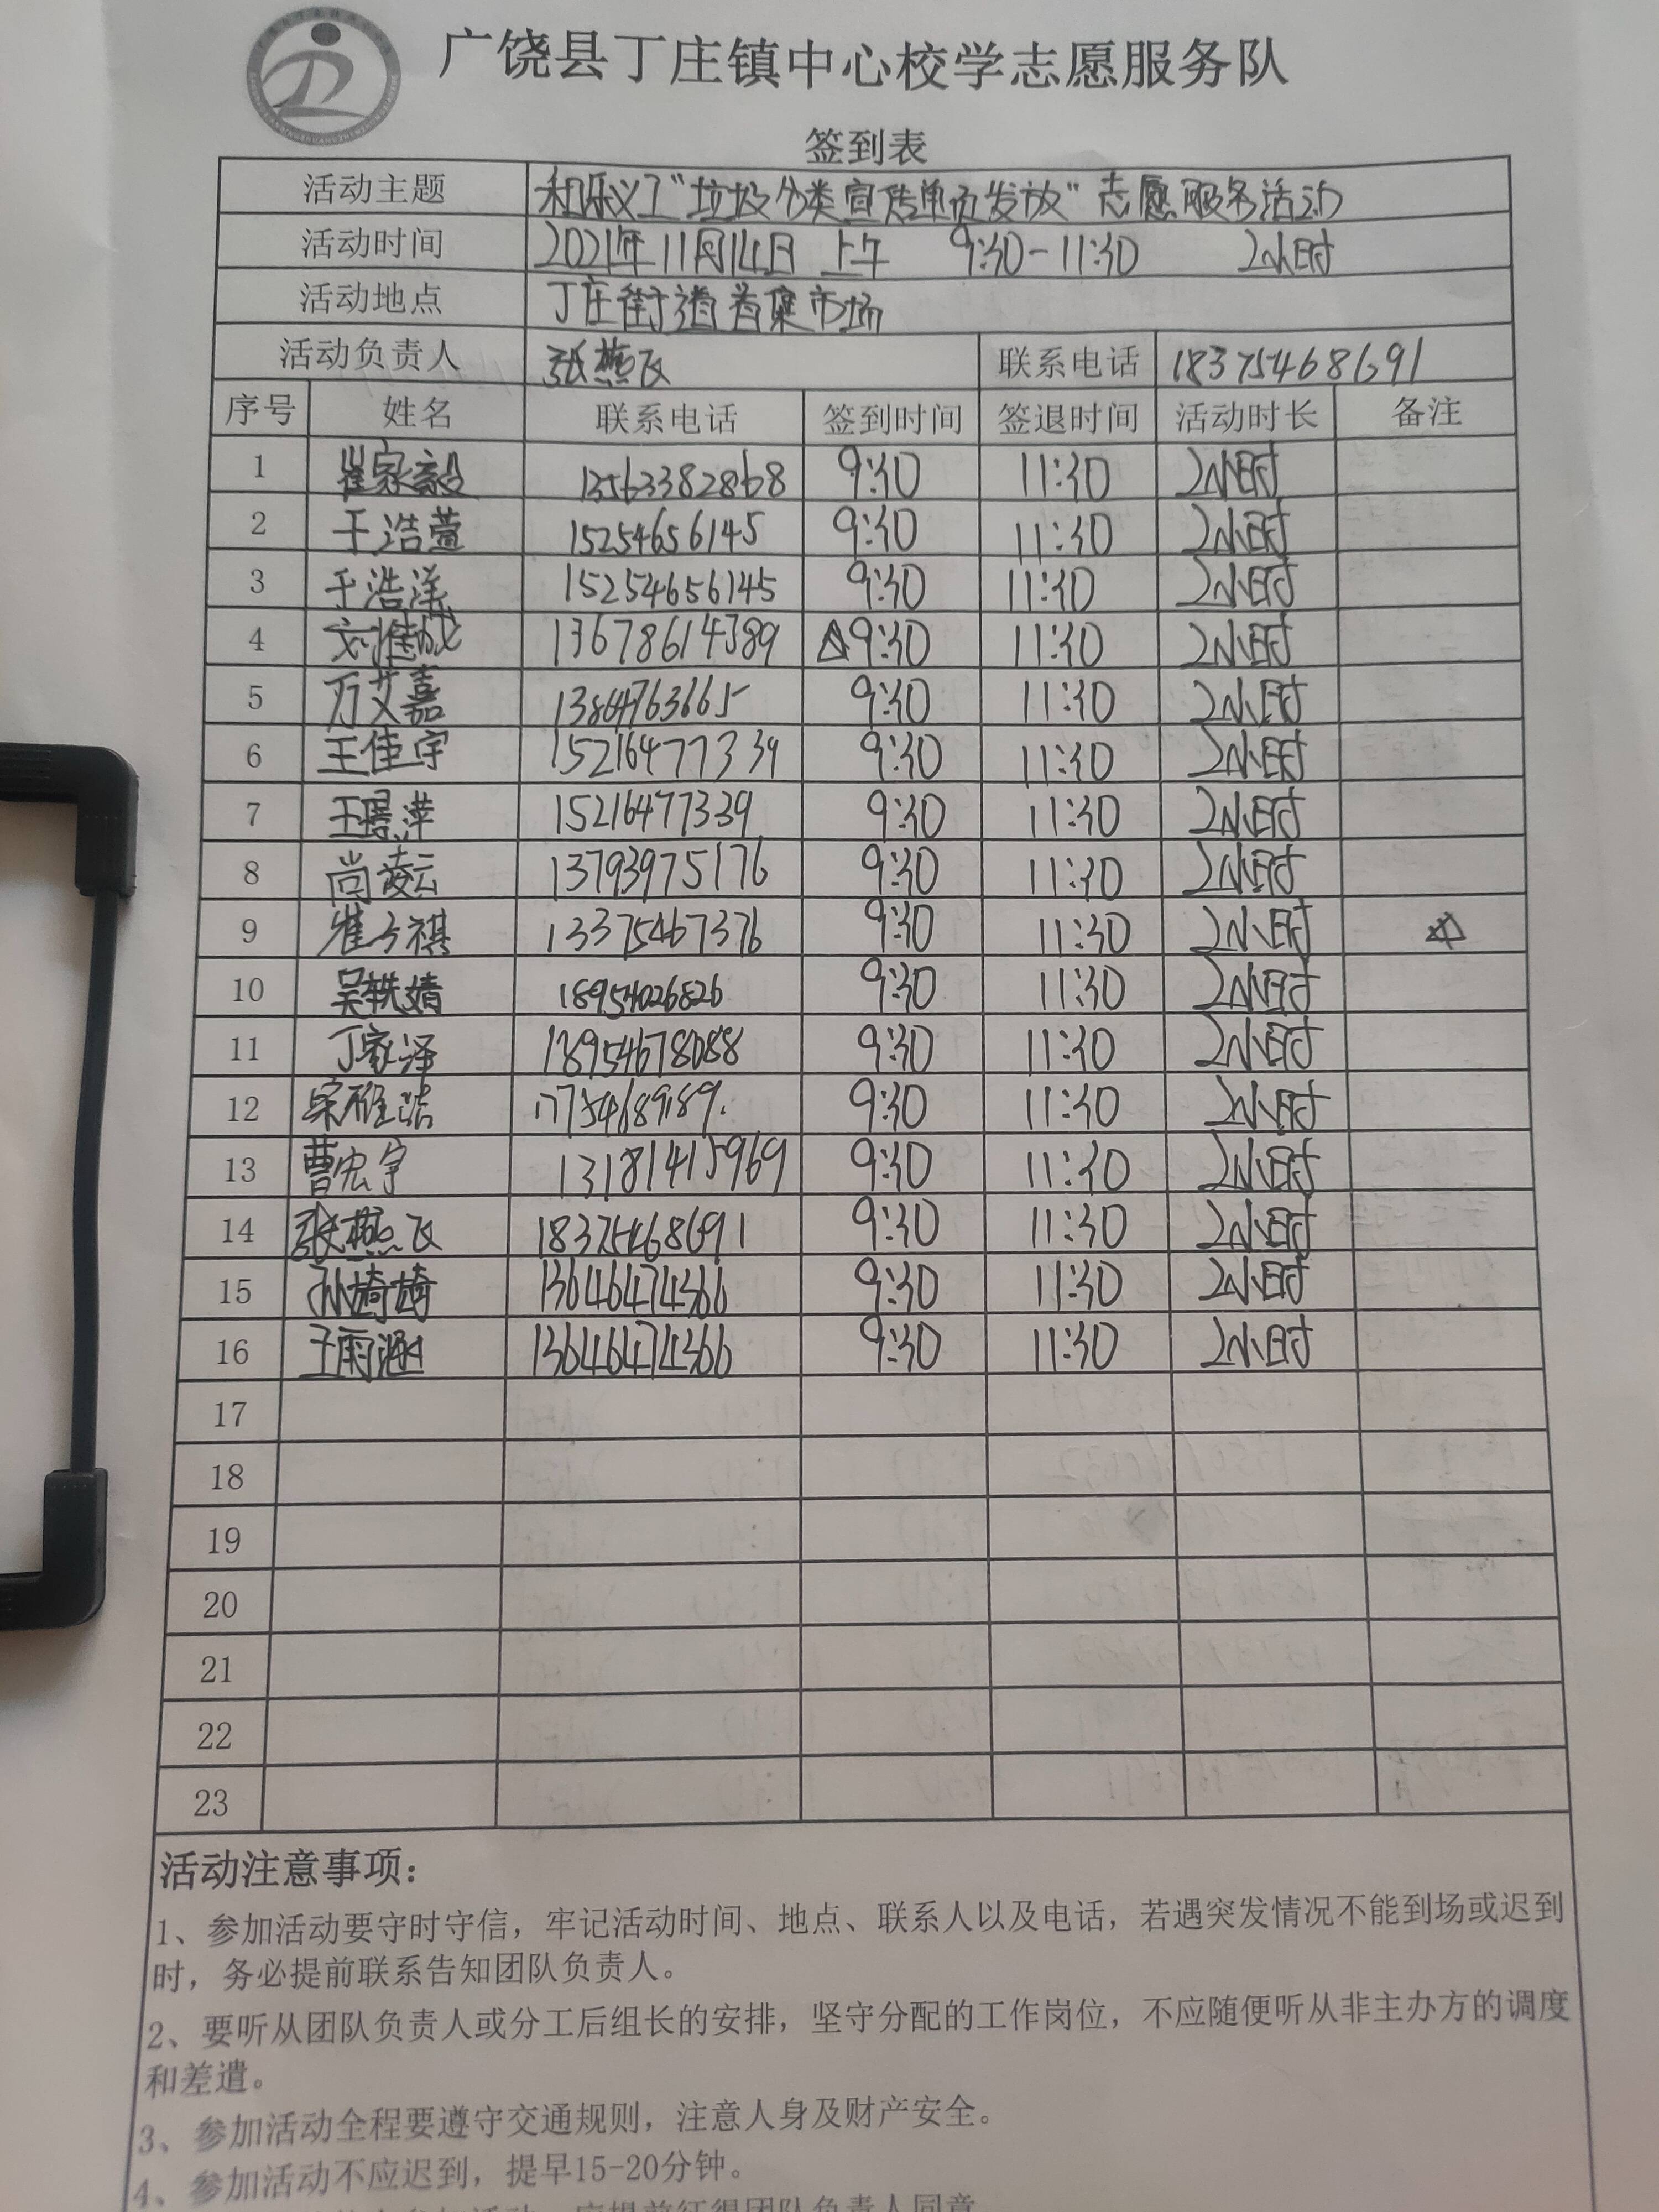 广饶县丁庄镇中心校学志愿服务队
签到表
活动主题 和乐义工“垃圾分类宣传单页发放”志愿服务活动
活动时间 2021年11月14日 上午 9:30-11:30 2小时
活动地点 丁庄街道 集市场
活动负责人 张燕飞 联系电话 18375468691
序号 姓名 联系电话 签到时间 签退时间 活动时长 备注
1 崔家毅 13563382868 9:30 11:30 2小时
2 于浩萱 15254656145 9:30 11:30 2小时
3 于浩洋 15254656145 9:30 11:30 2小时
4 13678614389 9:30 11:30 2小时
5 万艾嘉 13864763665 9:30 11:30 2小时
6 王佳宇 15216477339 9:30 11:30 2小时
7 王璟萍 15216477339 9:30 11:30 2小时
8 尚凌云 13793975176 9:30 11:30 2小时
9 崔子祺 13375467376 9:30 11:30 2小时
10 吴轶婧 18954026826 9:30 11:30 2小时
11 丁家泽 18954678088 9:30 11:30 2小时
12 宋雅洁 9:30 11:30 2小时
13 曹宏宇 13181415969 9:30 11:30 2小时
14 张燕飞 18375468691 9:30 11:30 2小时
15 孙婍婍 13646474366 9:30 11:30 2小时
16 王雨涵 13646474366 9:30 11:30 2小时
17
18
19
20
21
22
23
活动注意事项：
1、参加活动要守时守信，牢记活动时间、地点、联系人以及电话，若遇突发情况不能到场或迟到
时，务必提前联系告知团队负责人。
2、要听从团队负责人或分工后组长的安排，坚守分配的工作岗位，不应随便听从非主办方的调度
和差遣。
3、参加活动全程要遵守交通规则，注意人身及财产安全。
4、参加活动不应迟到，提早15-20分钟。